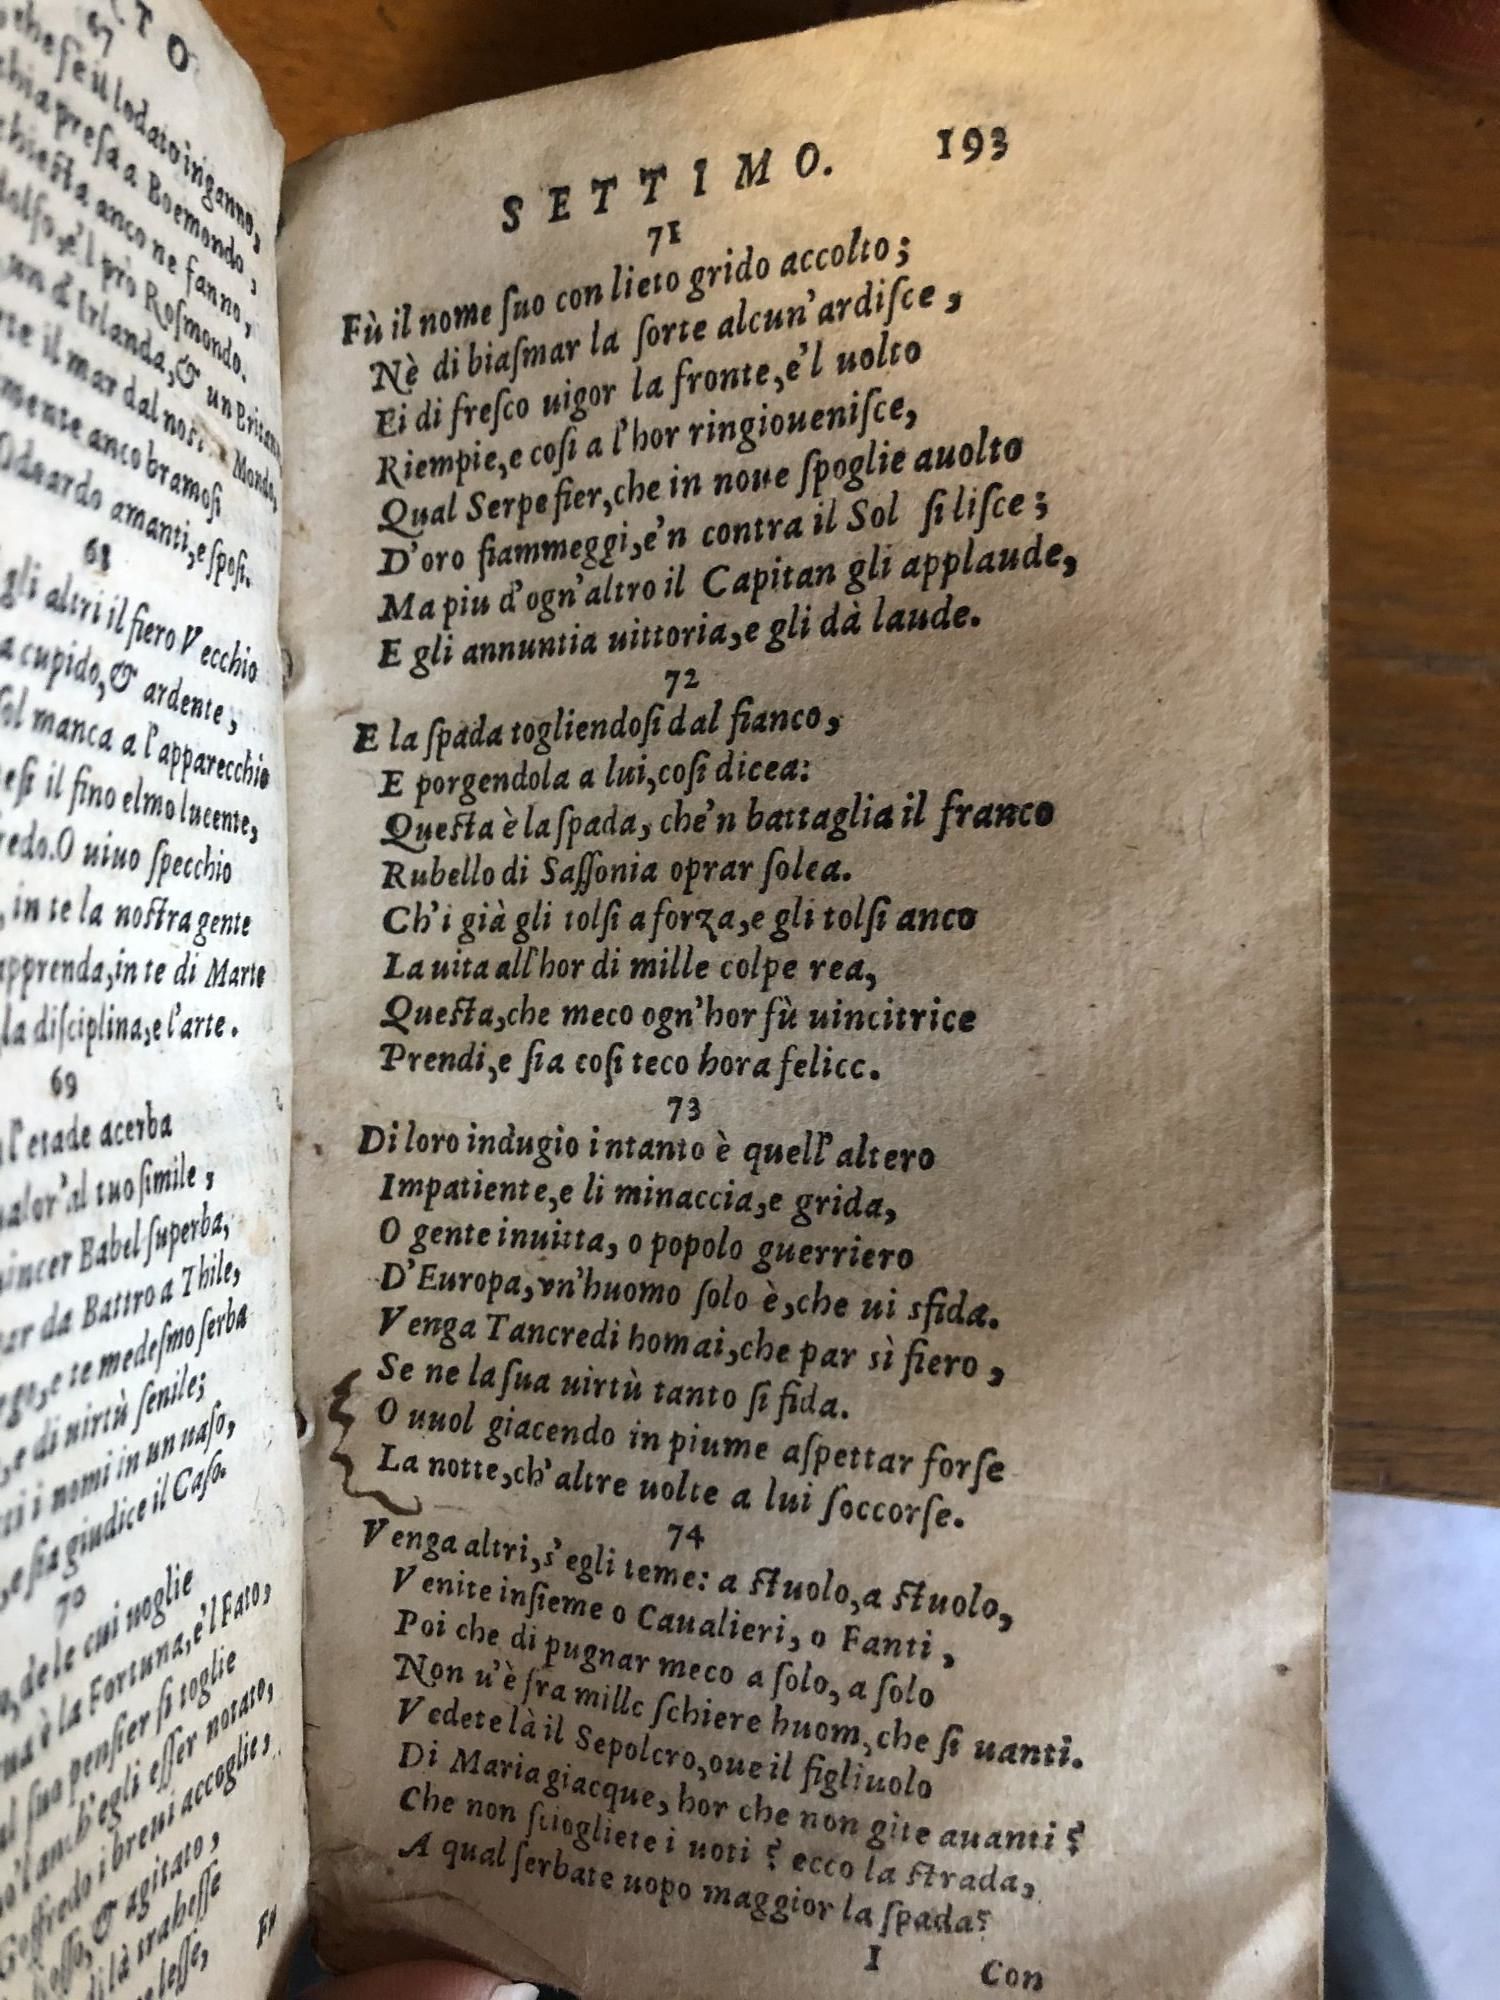 TTO
67
che se il lodato inganno,
presa a Boemondo,
anco ne fanno,
e'l prò Rosmondo.
un d'Irlanda, & un Britann
il mar dal nost Mondo,
mente anco bramosi
Odoardo amanti, e sposi.
68
gli altri il fiero Vecchio
cupido, & ardente,
sol manca a l'apparecchio
il fino elmo lucente,
O uiuo specchio
, in te la nostra gente
apprenda, in te di Marte
la disciplina, e l'arte.
69
l'etade acerba
al tuo simile,
uincer Babel superba,
da Battro a Thile,
e te medesmo serba
, e di uirtù senile;
i nomi in un uaso,
, e sia giudice il Caso.
70
, de le cui uoglie
è la Fortuna, e'l Fato,
suo pensier si toglie
anch'egli esser notato,
Goffredo i breui accoglie,
, & agitato,
là trahesse
lesse,
Fù
SETTIMO. 193
71
Fù il nome suo con lieto grido accolto;
Nè di biasmar la sorte alcun' ardisce,
Ei di fresco uigor la fronte, e'l uolto
Riempie, e cosi a l'hor ringiouenisce,
Qual Serpe fier, che in noue spoglie auolto
D'oro fiammeggi, e'n contra il Sol si lisce;
Ma piu d'ogn'altro il Capitan gli applaude,
E gli annuntia uittoria, e gli dà laude.
72
E la spada togliendosi dal fianco,
E porgendola a lui, cosi dicea:
Questa è la spada, che'n battaglia il franco
Rubello di Sassonia oprar solea.
Ch'i già gli tolsi a forza, e gli tolsi anco
La uita all'hor di mille colpe rea,
Questa, che meco ogn'hor fù uincitrice
Prendi, e sia cosi teco hora felicc.
73
Di loro indugio intanto è quell' altero
Impatiente, e li minaccia, e grida,
O gente inuitta, o popolo guerriero
D'Europa, vn'huomo solo è, che ui sfida.
Venga Tancredi homai, che par sì fiero,
Se ne la sua uirtù tanto si fida.
O uuol giacendo in piume aspettar forse
La notte, ch' altre uolte a lui soccorse.
74
Venga altri, s'egli teme: a stuolo, a stuolo,
Venite insieme o Caualieri, o Fanti,
Poi che di pugnar meco a solo, a solo
Non u'è fra millc schiere huom, che si uanti.
Vedete là il Sepolcro, oue il figliuolo
Di Maria giacque, hor che non gite auanti?
Che non sciogliete i uoti? ecco la strada,
A qual serbate uopo maggior la spada?
I Con